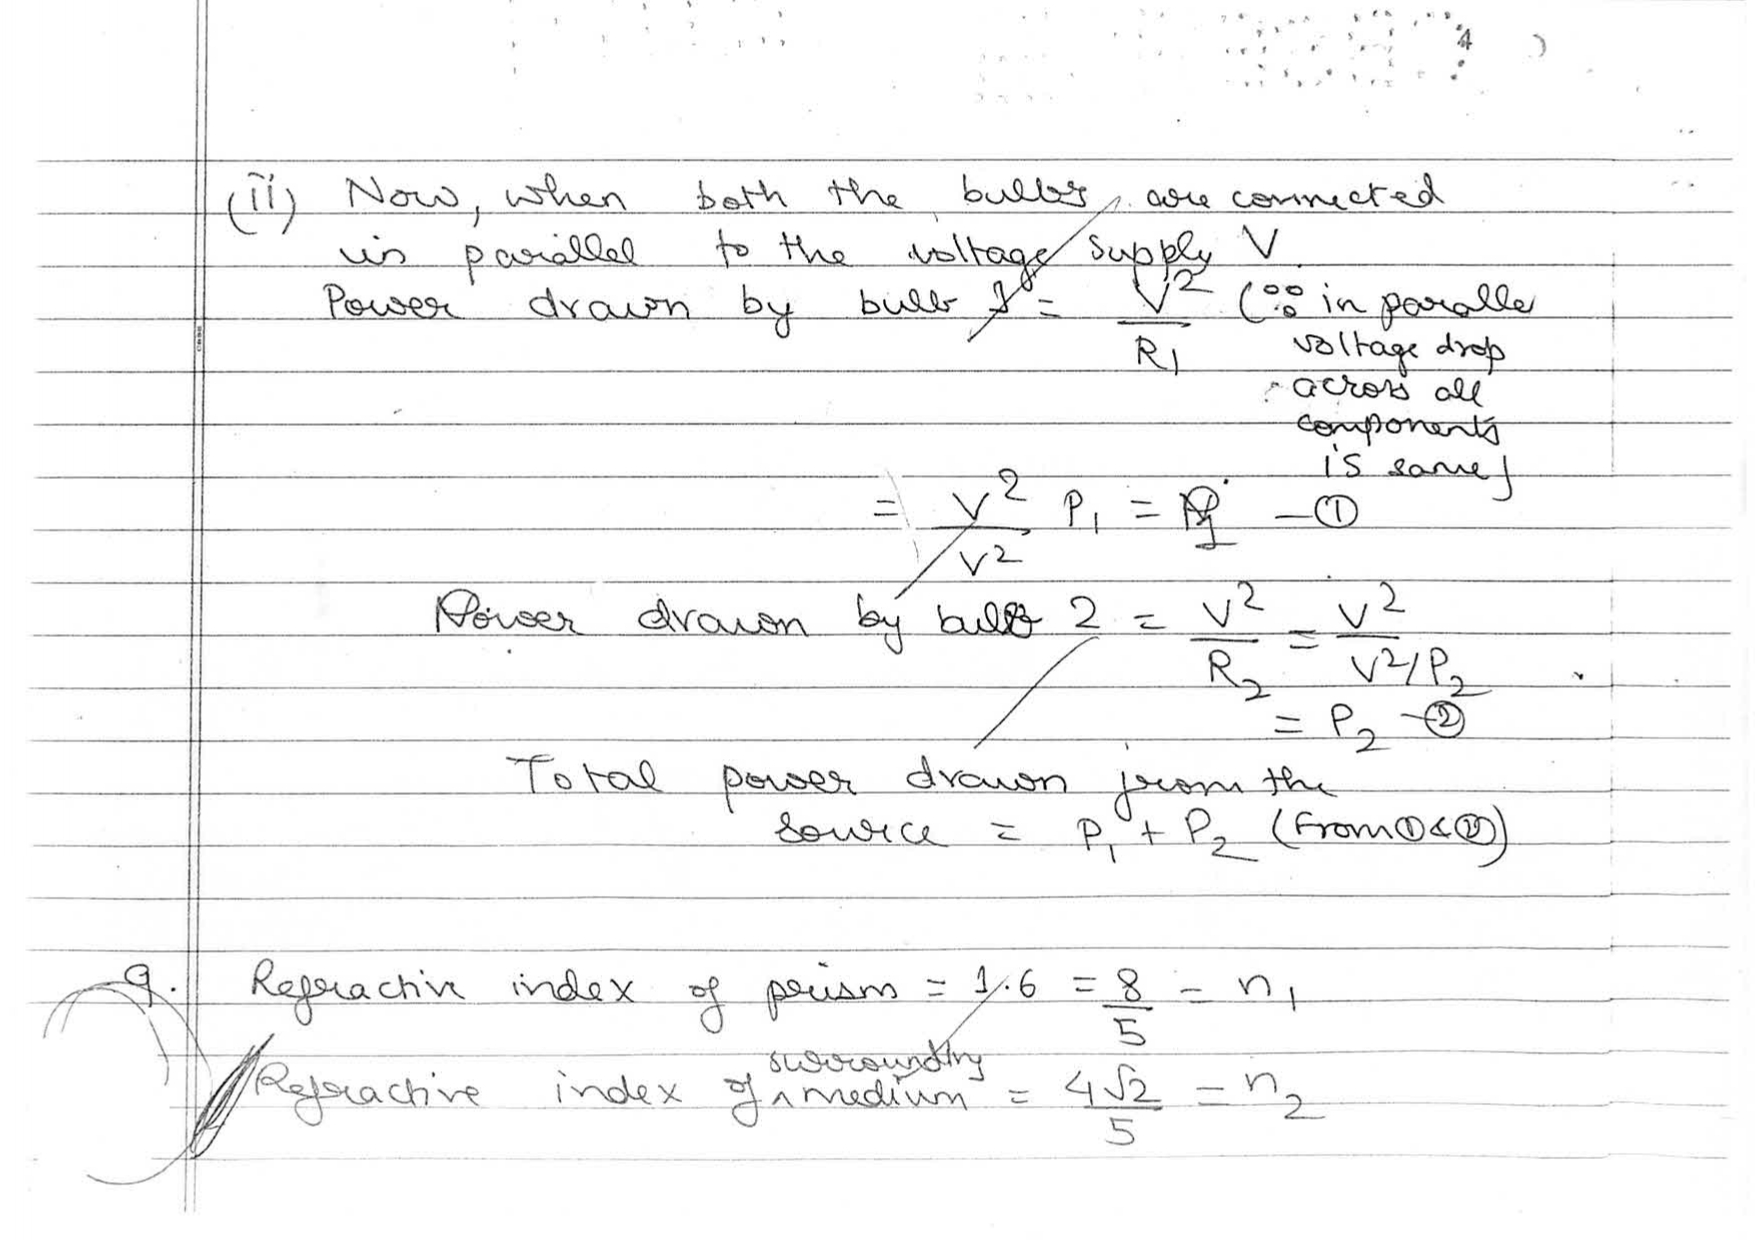 4
(ii) Now, when both the bulbs are connected
in parallel to the voltage supply V
Power drawn by bulb 1 = V²/R₁ (∵ in paralle
voltage drop
across all
components
is same)
= V²/V² P₁ = P₁ - ①
Power drawn by bulb 2 = V²/R₂ = V²/V²/P₂
= P₂ - ②
Total power drawn from the
source = P₁ + P₂ (From ① & ②)
9. Refractive index of prism = 1.6 = 8/5 = n₁
surrounding
Refractive index of ^ medium = 4√2/5 = n₂